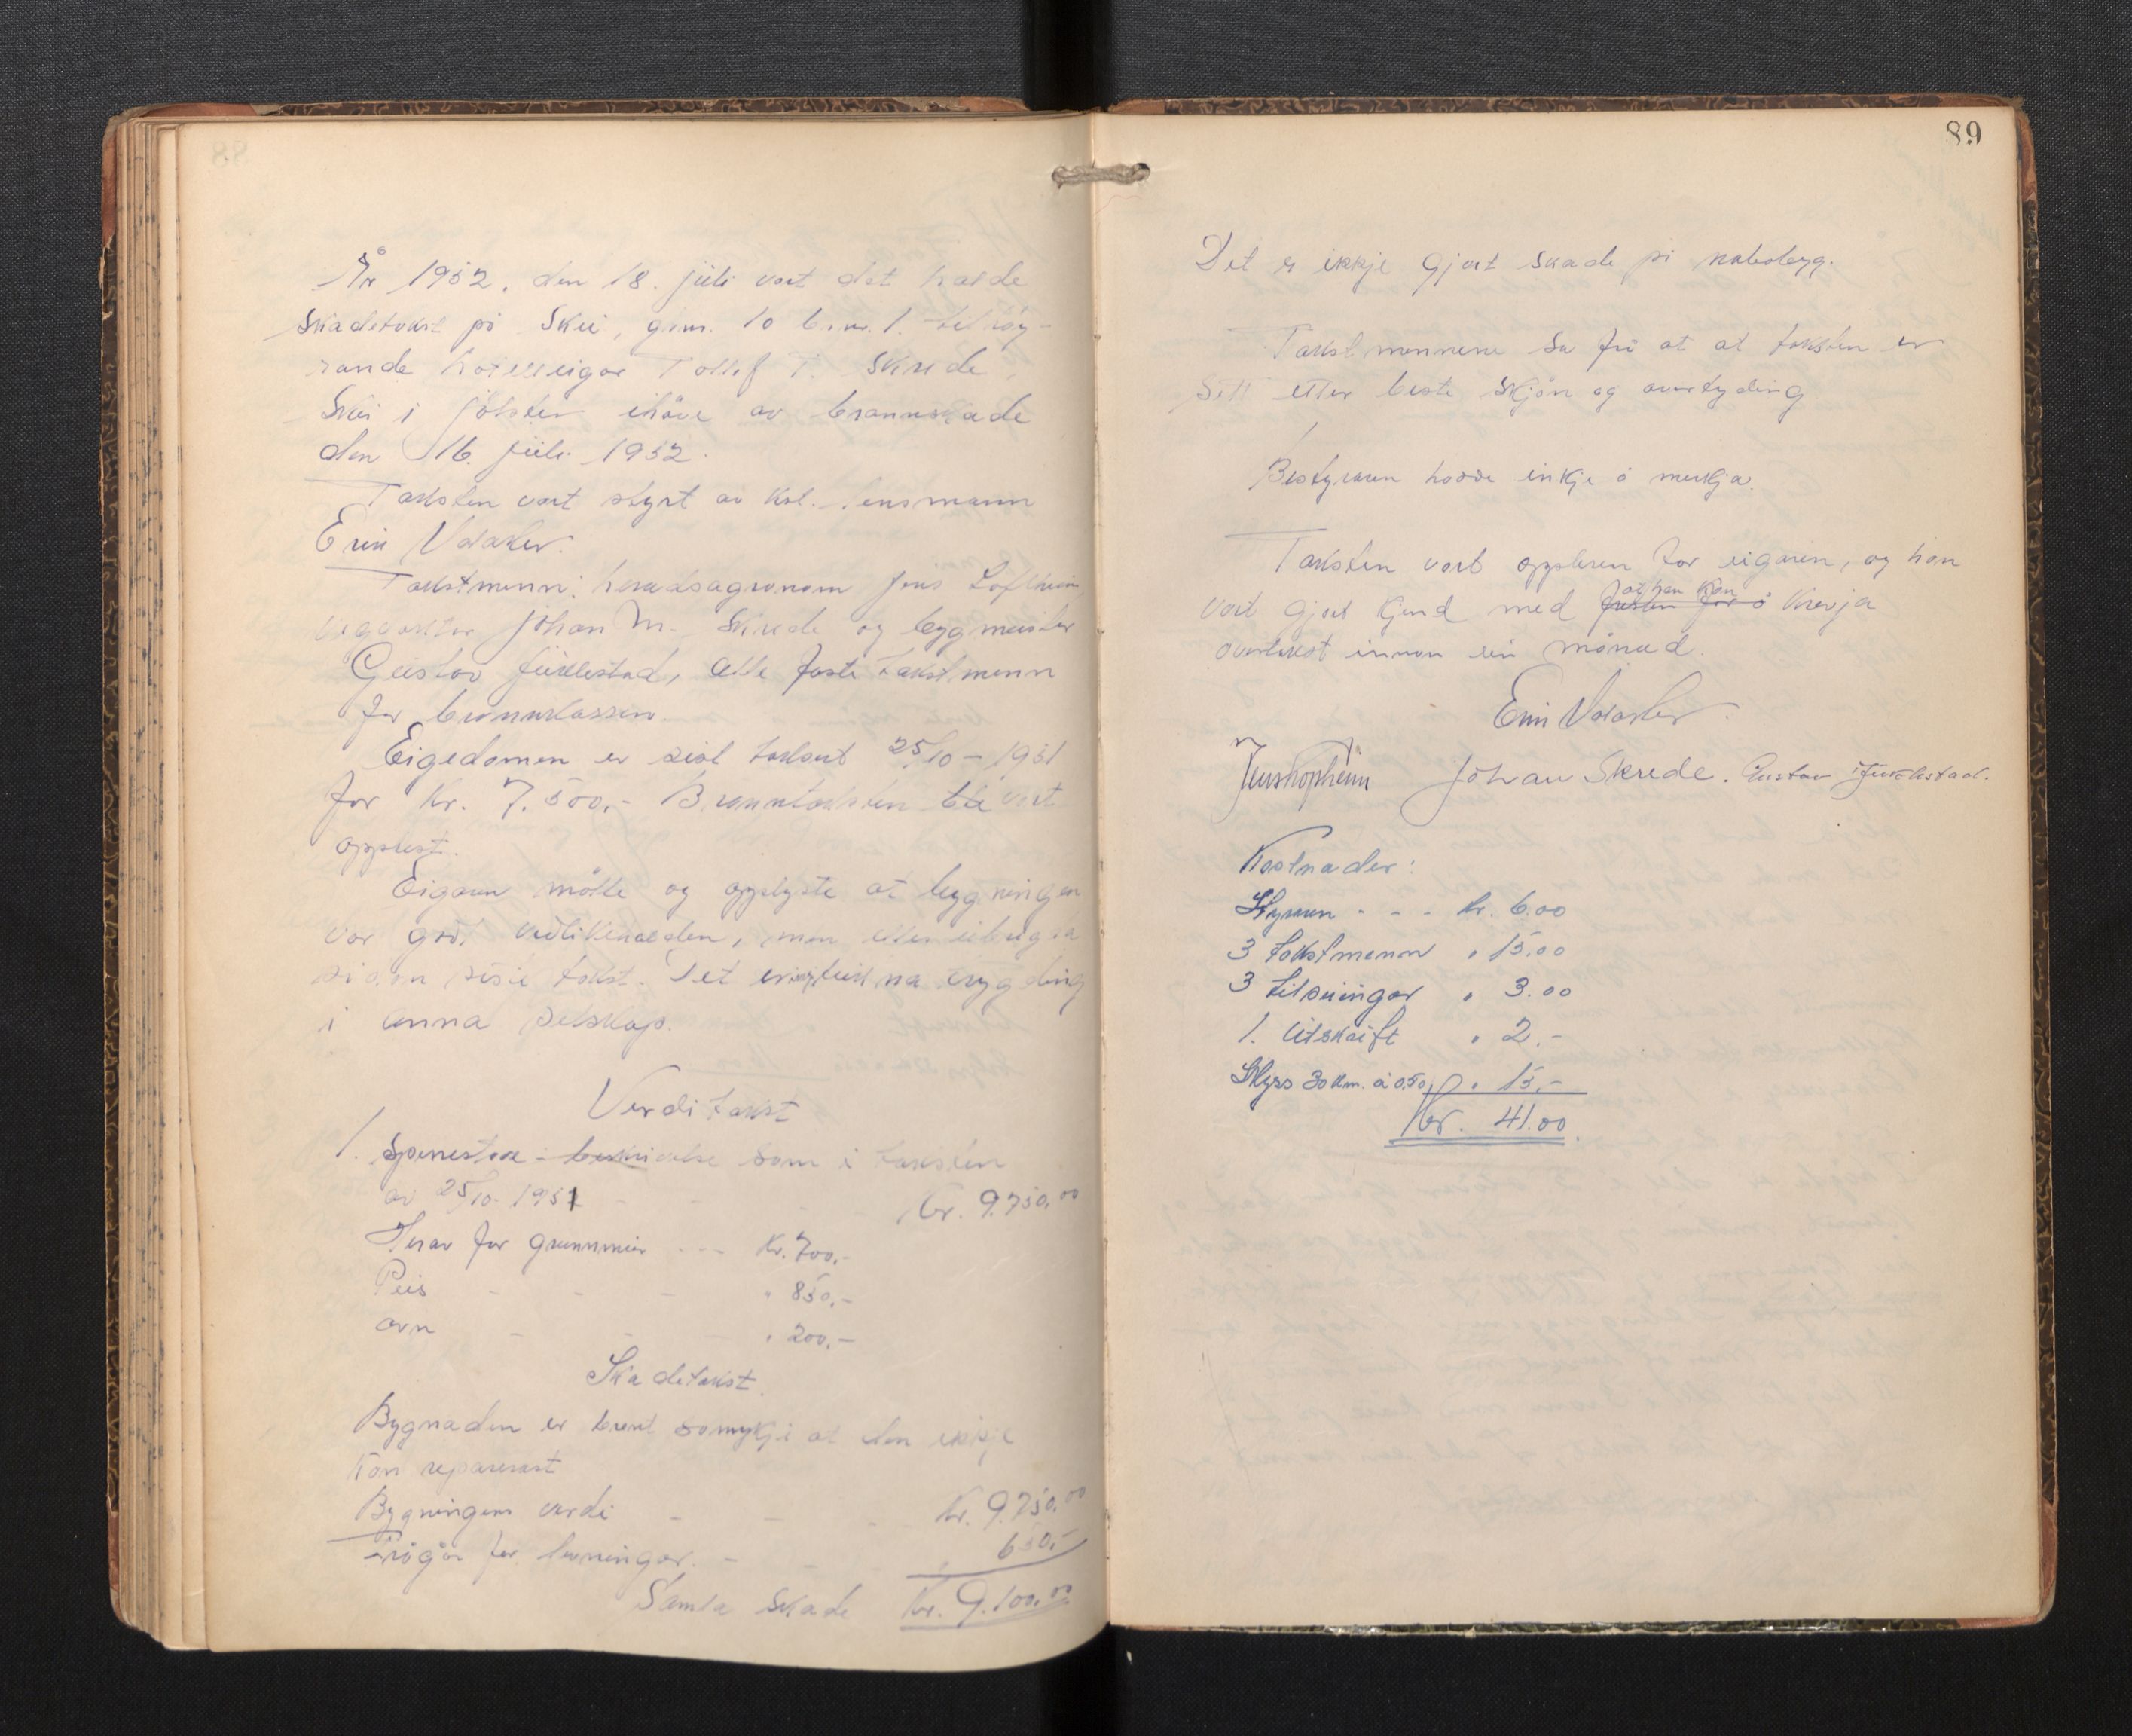 År 1952, den 18. juli vart det halde
skadetakst på Skei, g.nr. 10 b.nr. 1. tilhøy-
rande hotelleigar Tollef T. Skrede,
Skei i Jølster ihöve av brannskade
den 16. juli 1952.
Taksten vart styrt av kst. lensmann
Erin
Takstmenn: heradsagronom Jens Loftheim,
vegvaktar Johan M. Skrede og bygmeister
Gustav Juklestad, alle faste takstmenn
for brannkassen.
Eigedomen er sist taksert 25/10 - 1951
for kr. 7.500,- Branntaksten ble vart
opplest.
Eigaren møtte og opplyste at bygningen
var godt vedlikehalden, men elles
sidan siste takst. Det er ikkje teikna trygding
i anna selskap.
Verditakst
1. Sperrestove - beskrivelse som i taksten
av 25/10- 1951 - - - kr. 9.750,00
Herav for grunnmur - - - kr. 700,-
Peis - - - " 850,-
Ovn - - - " 200,-
Skadetakst.
Bygnaden er brent so mykje at den ikkje
kan reparerast
Bygningens verdi - - - kr. 9.750,00
Frågår for levningar. - - 650,-
Samla skade kr. 9.100,00
89
Det er ikkje gjort skade på nabobygg.
Takstmennene sa frå at at taksten er
sett etter beste skjön og overtyding
Bestyraren hadde inkje å merkja.
Taksten vart opplesen for eigaren, og han
at han kan
vart gjort kjend med fristen for å krevja
overtakst innan ein månad.
Erin
Jens Loftheim Johan Skrede. Gustav Juklestad.
Kostnader:
Styraren - - - kr. 6.00
3 takstmenn " 15.00
3 tilseiingar " 3.00
1. Utskrift " 2.-
Skyss 30 km. à 0,50 " 15,-
kr. 41.00